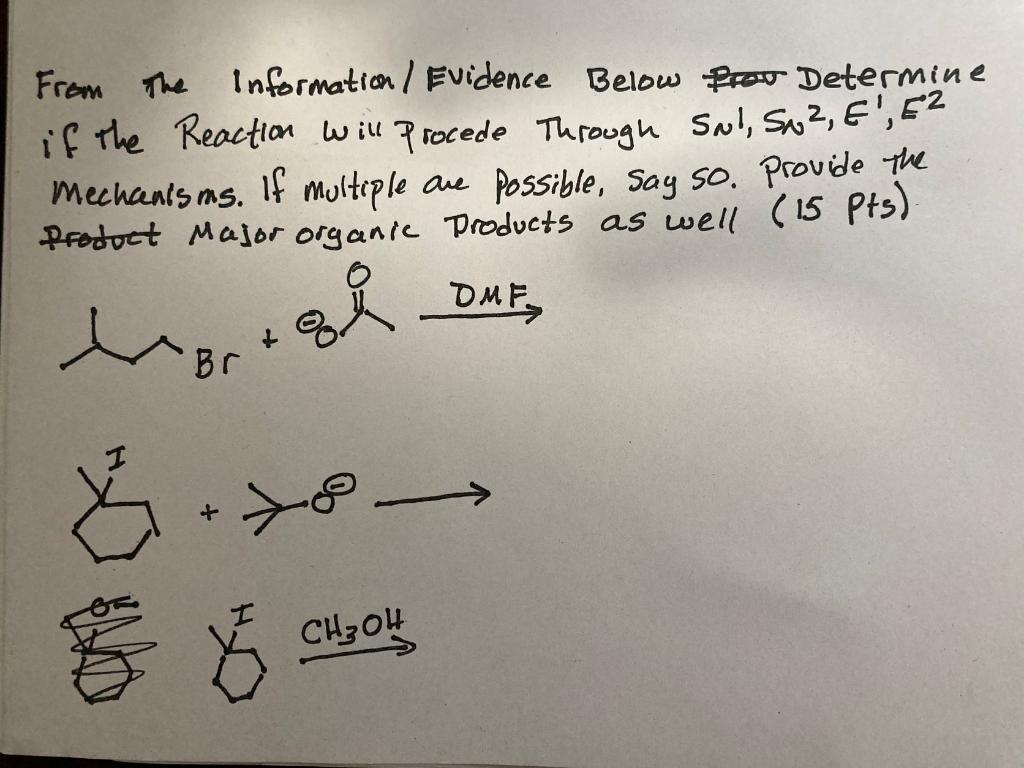 From The Information/Evidence Below Prov Determine
if The Reaction will Procede Through SN1, SN2, E1, E2
Mechanisms. If multiple are possible, say so. Provide the
Product Major organic Products as well (15 Pts)
O
DMF
⊖O
+
Br
I
⊖
+
O
I
CH3OH